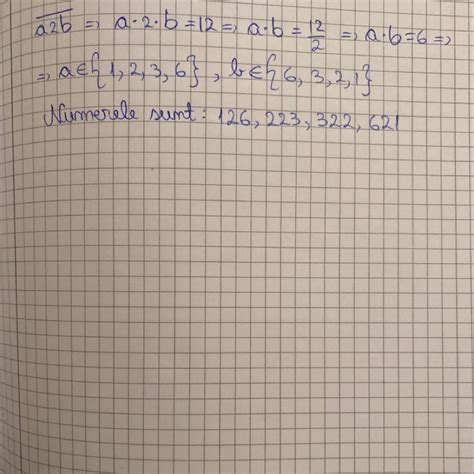 a2b => a·2·b=12=> a·b=12/2 => a·b=6=>
=> a∈{1,2,3,6}, b∈{6,3,2,1}
Numerele sunt: 126, 223, 322, 621